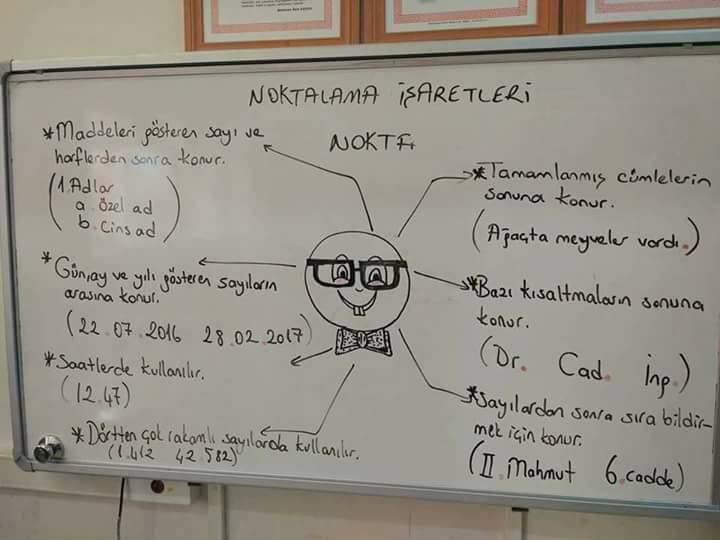 NOKTALAMA İŞARETLERİ
NOKTA
*Maddeleri gösteren sayı ve
harflerden sonra konur.
(1.Adlar
a.özel ad
b.Cins ad)
*Gün,ay ve yılı gösteren sayıların
arasına konur.
(22.07.2016 28.02.2017)
*Saatlerde kullanılır.
(12.47)
*Dörtten çok rakamlı sayılarda kullanılır.
(1.412 42.582)
*Tamamlanmış cümlelerin
sonuna konur.
(Ağaçta meyveler vardı.)
*Bazı kısaltmaların sonuna
konur.
(Dr. Cad. İnp.)
*Sayılardan sonra sıra bildir-
mek için konur.
(II.Mahmut 6.cadde)